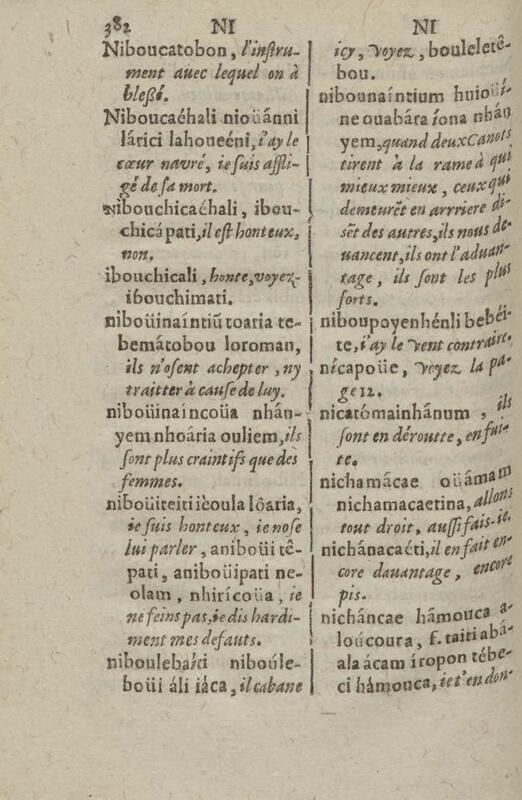 382 NI
Niboucatobon, l'inſtru-
ment auec lequel on à
bleßé.
Niboucaéhali nioüánni
lárici lahoueéni, i'ay le
cœur navré, ie ſuis affli-
gé de ſa mort.
Nibouchicaéhali, ibou-
chicá pati, il eſt honteux,
non.
ibouchicali, honte, voyez
ibouchimati.
niboüinaíntiũ toaria te-
bemátobou loroman,
ils n'oſent achepter, ny
traitter à cauſe de luy.
niboüinaíncoüa nhán-
yem nhoária ouliem, ils
ſont plus craintifs que des
femmes.
niboüiteiti ièoula lôaria,
ie ſuis honteux, ie noſe
lui parler, aniboüi tê-
pati, aniboüipati ne-
olam, nhirícoüa, ie
ne feins pas, ie dis hardi-
ment mes defauts.
niboulebaìci niboúle-
boüi áli iáca, il cabane
NI
icy, voyez, bouleletê-
bou.
nibounaíntium huioüi-
ne ouabára íona nhán
yem, quand deux Canots
tirent à la rame à qui
mieux mieux, ceux qui
demeurẽt en arrriere di-
sẽt des autres, ils nous de-
uancent, ils ont l'aduan-
tage, ils ſont les plus
forts.
niboupoyenhénli bebéi-
te, i'ay le vent contraire.
nícapoüe, voyez la pa-
ge 12.
nicatómainhánum, ils
ſont en déroutte, en fui-
te.
nichamácae oüámam
nichamacaetina, allons
tout droit, auſſi fais-ie.
nichánacaéti, il en fait en-
core dauantage, encore
pis.
nicháncae hámouca a-
loúcoura, f. taiti abá-
ala ácam íropon tébe-
ci hámouca, ie t'en don-